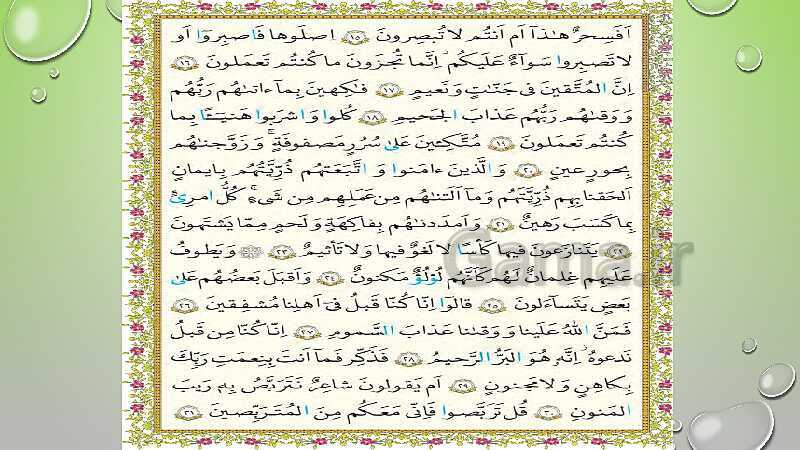 اَفَسِحرٌ هٰذآ اَم اَنتُم لا تُبصِرونَ ﴿١٥﴾ اِصلَوها فَاصبِروا اَو
لا تَصبِروا سَوآءٌ عَلَيكُم اِنَّما تُجزَونَ ما كُنتُم تَعمَلونَ ﴿١٦﴾
اِنَّ المُتَّقينَ فى جَنّاتٍ وَ نَعيمٍ ﴿١٧﴾ فٰكِهينَ بِمآ ءاتٰىهُم رَبُّهُم
وَ وَقىٰهُم رَبُّهُم عَذابَ الجَحيمِ ﴿١٨﴾ كُلوا وَ اشرَبوا هَنيـًٔا بِما
كُنتُم تَعمَلونَ ﴿١٩﴾ مُتَّكِـٔينَ عَلىٰ سُرُرٍ مَصفوفَةٍ وَ زَوَّجنٰهُم
بِحورٍ عينٍ ﴿٢٠﴾ وَ الَّذينَ ءامَنوا وَ اتَّبَعَتهُم ذُرِّيَّتُهُم بِايمانٍ
اَلحَقنا بِهِم ذُرِّيَّتَهُم وَ مآ اَلَتنٰهُم مِن عَمَلِهِم مِن شَىءٍ كُلُّ امرِئٍ
بِما كَسَبَ رَهينٌ ﴿٢١﴾ وَ اَمدَدنٰهُم بِفاكِهَةٍ وَ لَحمٍ مِمّا يَشتَهونَ
﴿٢٢﴾ يَتَنازَعونَ فيها كَأسًا لا لَغوٌ فيها وَ لا تَأثيمٌ ﴿٢٣﴾ وَ يَطوفُ
عَلَيهِم غِلمانٌ لَهُم كَاَنَّهُم لُؤلُؤٌ مَكنونٌ ﴿٢٤﴾ وَ اَقبَلَ بَعضُهُم عَلىٰ
بَعضٍ يَتَسآءَلونَ ﴿٢٥﴾ قالوا اِنّا كُنّا قَبلُ فىٓ اَهلِنا مُشفِقينَ ﴿٢٦﴾
فَمَنَّ اللهُ عَلَينا وَ وَقىٰنا عَذابَ السَّمومِ ﴿٢٧﴾ اِنّا كُنّا مِن قَبلُ
نَدعوهُ اِنَّهُ هُوَ البَرُّ الرَّحيمُ ﴿٢٨﴾ فَذَكِّر فَمآ اَنتَ بِنِعمَتِ رَبِّكَ
بِكاهِنٍ وَ لا مَجنونٍ ﴿٢٩﴾ اَم يَقولونَ شاعِرٌ نَتَرَبَّصُ بِهِ رَيبَ
المَنونِ ﴿٣٠﴾ قُل تَرَبَّصوا فَاِنّى مَعَكُم مِنَ المُتَرَبِّصينَ ﴿٣١﴾
Gama.ir